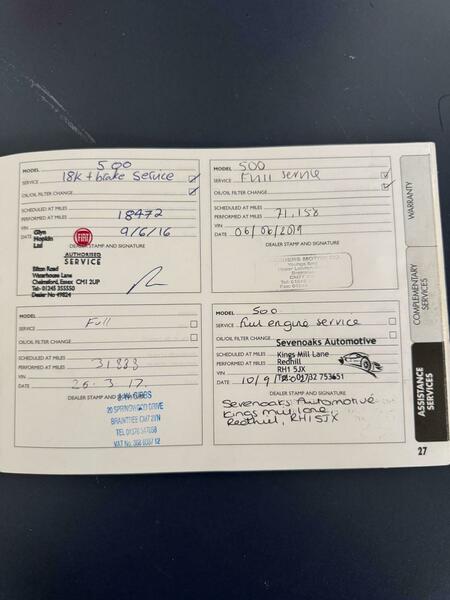 MODEL 500
SERVICE 18K + brake Service
OIL/OIL FILTER CHANGE
SCHEDULED AT MILES
PERFORMED AT MILES 18472
VIN
DATE 9/6/16
DEALER STAMP AND SIGNATURE
Glyn
Hopkin
Ltd
FIAT
AUTHORISED
SERVICE
Eilton Road
Waterhouse Lane
Chelmsford, Essex CM1 2UP
Tel: 01245 355550
Dealer No 49824
MODEL 500
SERVICE Full service
OIL/OIL FILTER CHANGE
SCHEDULED AT MILES
PERFORMED AT MILES 71,158
VIN
DATE 06/06/2019
DEALER STAMP AND SIGNATURE
MODEL
SERVICE Full
OIL/OIL FILTER CHANGE
SCHEDULED AT MILES
PERFORMED AT MILES 31888
VIN
DATE 25.3.17.
DEALER STAMP AND
20 SPRINGWOOD DRIVE
BRAINTREE CM7 2YN
MODEL 500
SERVICE full engine service
OIL/OIL FILTER CHANGE
Sevenoaks Automotive
SCHEDULED AT MILES
Kings Mill Lane
PERFORMED AT MILES
Redhill
VIN
RH1 5JX
DATE 10/9
01732 753651
DEALER STAMP AND SIGNATURE
Sevenoaks Automotive
Kings mill lane,
Redhill, RH1 5JX
WARRANTY
COMPLEMENTARY
SERVICES
ASSISTANCE
SERVICES
27